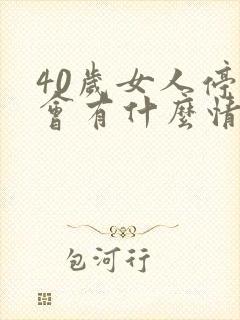 40歲女人停
會有什麼情
包河行